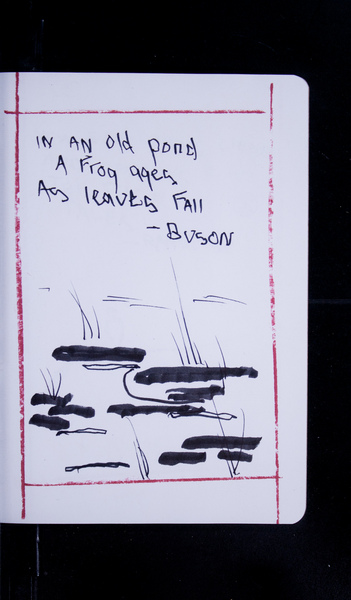 IN AN Old pond
A Frog ages
As leaves Fall
- BUSON